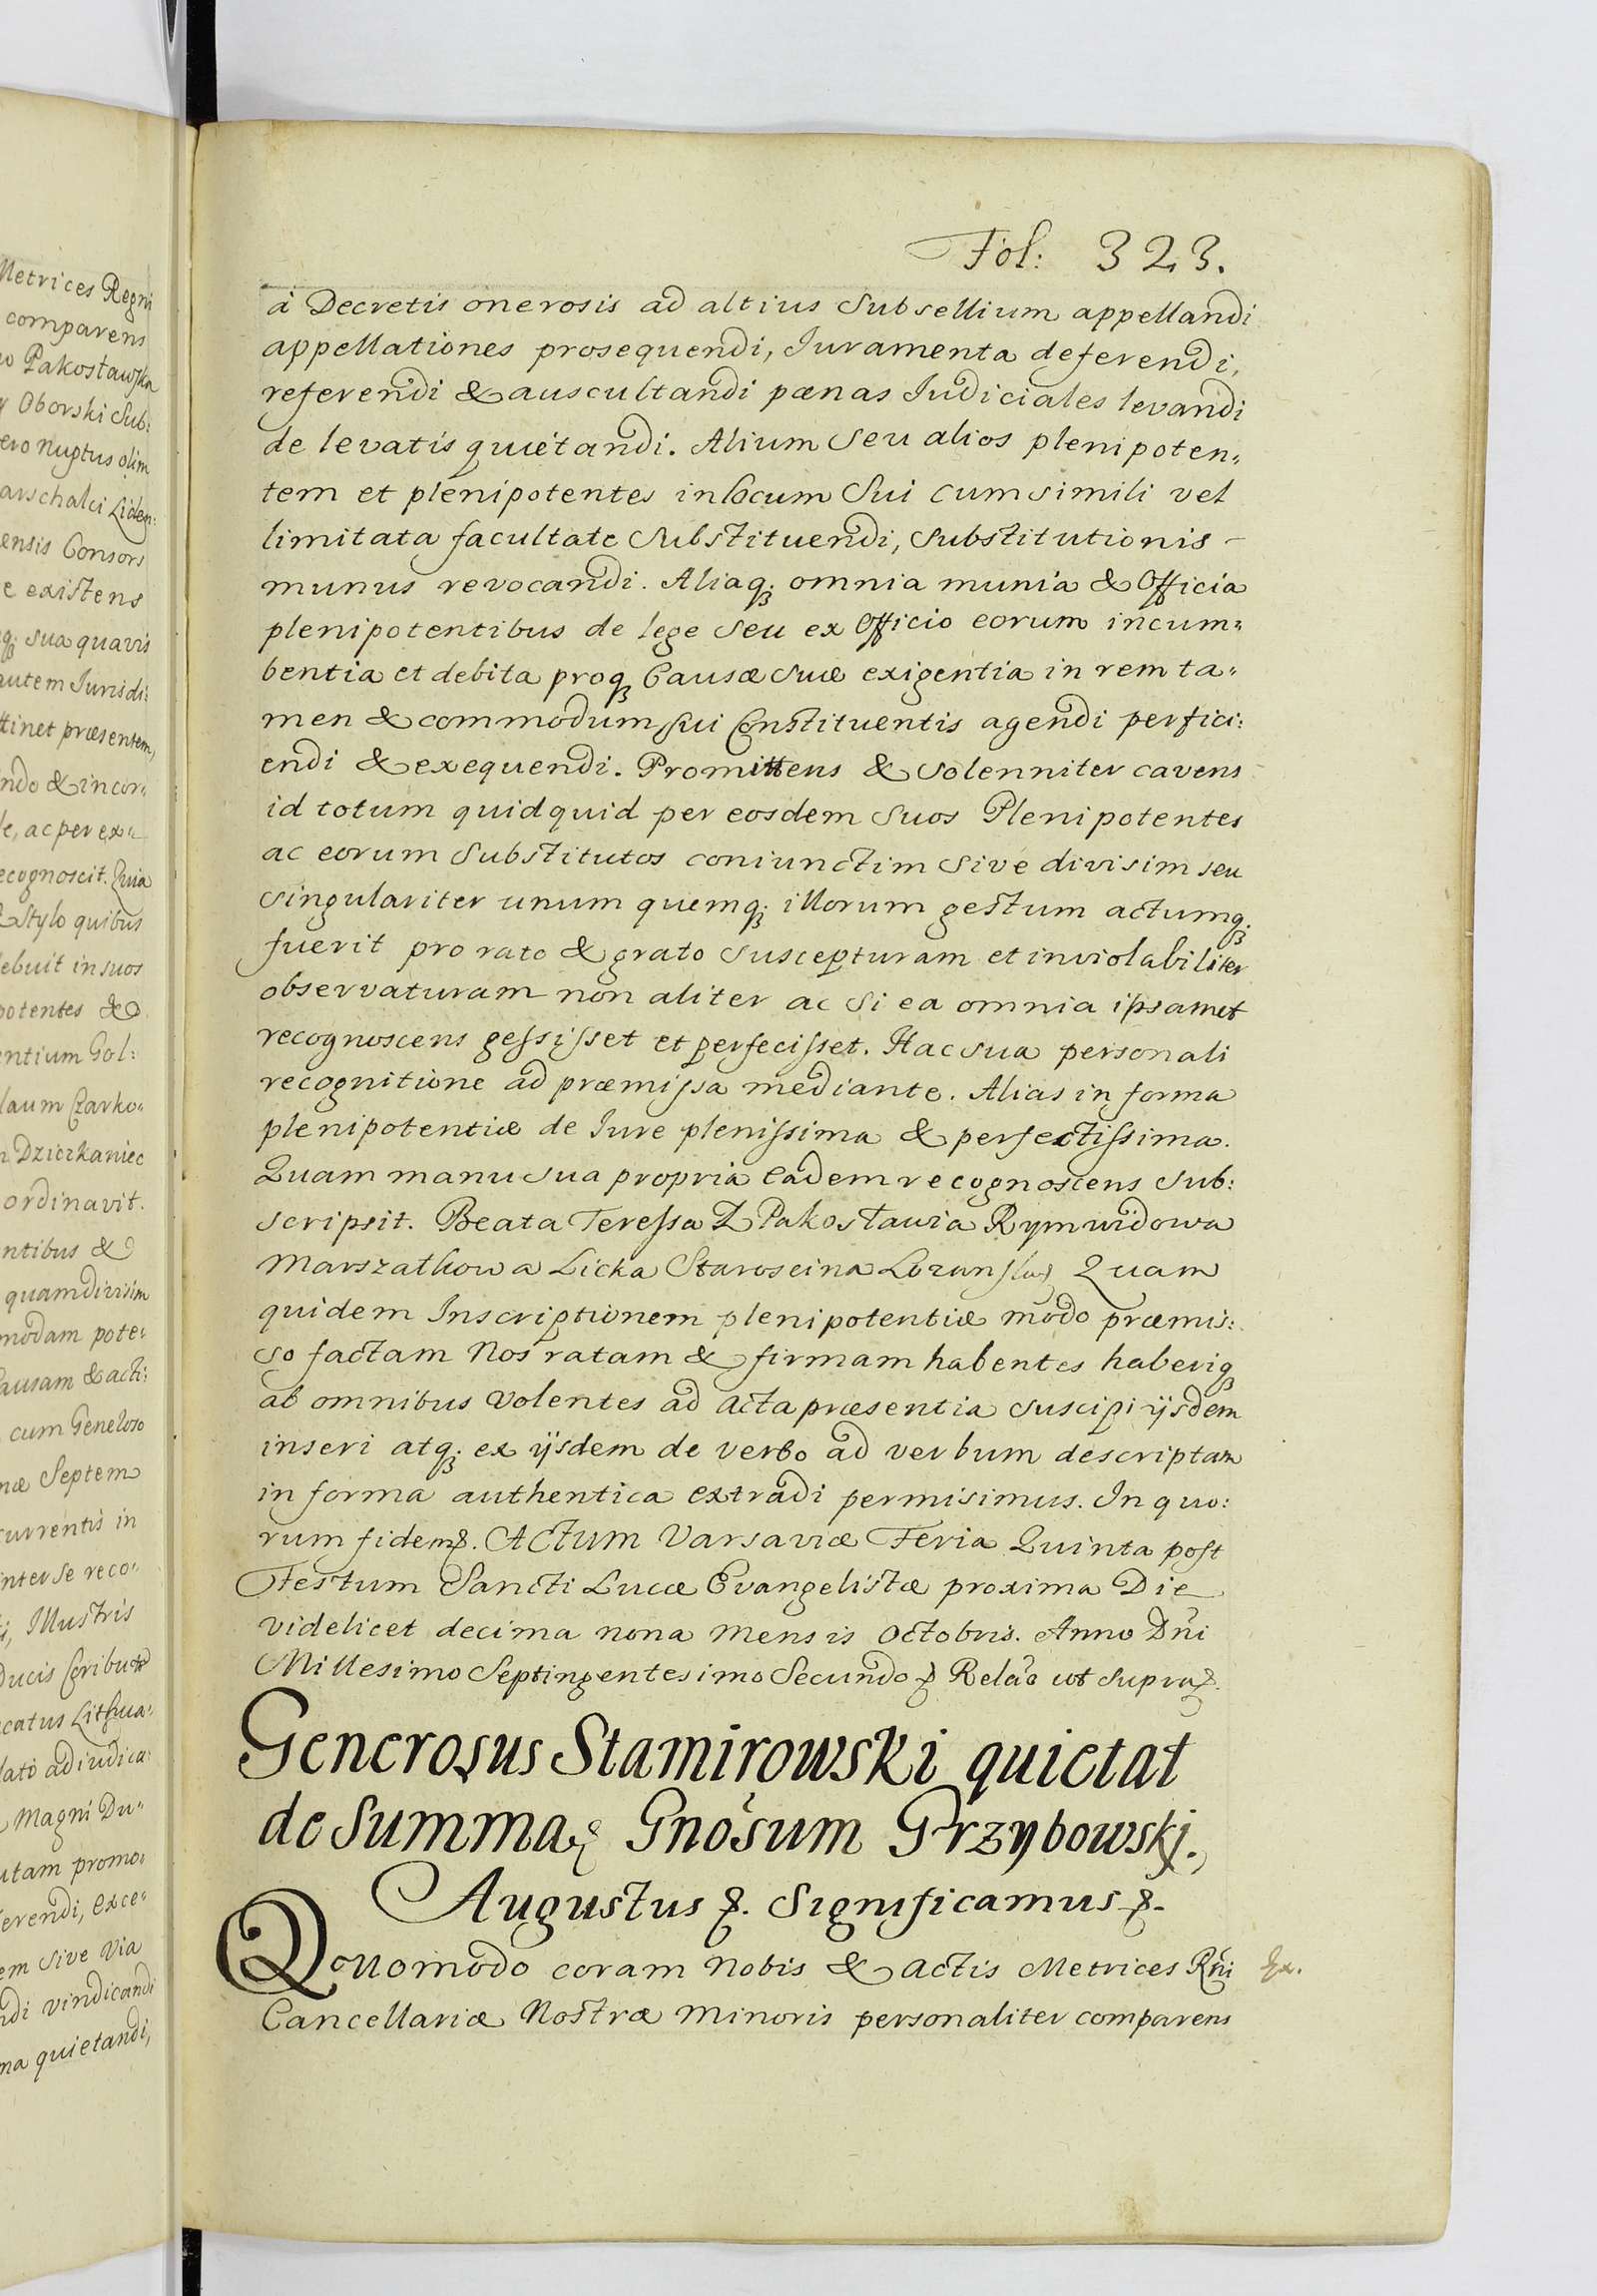 Metrices Regni
comparens
Pakosławska
Oborski Sub:
ero nuptus olim
arschalci Liden:
ensis Consors
e existens
q; sua quavis
autem Jurisdi:
ttinet præsentem,
ndo & incor„
le, ac per ex„
ecognoscit. Quia
& Stylo quibus
debuit in suos
potentes &
entium Gol:
laum Czarko„
Dzierkaniec
ordinavit.
ntibus &
quam divisim
modam pote„
ausam & acti:
cum Generoso
næ Septem
currentis in
inter se reco„
i, Illustris
Ducis
catus Lithua„
lato adiudica:
Magni Du„
utam promo„
ferendi, exce„
em sive via
ndi vindicandi
ma quietandi,
Fol: 323.
à Decretis onerosis ad altius Subsellium appellandi
appellationes prosequendi, Iuramenta deferendi,
referendi & auscultandi pœnas Iudiciales levandi
de levatis quietandi. Alium Seu alios plenipoten„
tem et plenipotentes in locum Sui cum simili vel
limitata facultate Substituendi, Substitutionis
munus revocandi. Aliaq; omnia munia & Officia
plenipotentibus de lege seu ex Officio eorum incum„
bentia et debita proq; Causæ suæ exigentia in rem ta„
men & commodum sui Constituentis agendi perfici:
endi & exequendi. Promittens & solenniter cavens
id totum quidquid per eosdem suos Plenipotentes
ac eorum Substitutos coniunctim sive divisim seu
singulariter unum quemq; illorum gestum actumq;
fuerit pro rato & grato suscepturam et inviolabiliter
observaturam non aliter ac si ea omnia ipsamet
recognoscens gessisset et perfecisset. Hac sua personali
recognitione ad præmissa mediante. Alias in forma
plenipotentiæ de Iure plenissima & perfectissima.
Quam manu sua propria eadem recognoscens sub:
scripsit. Beata Teressa Z Pakosławia Rymwidowa
Marszałkowa Licka Staroscina Quam
quidem Inscriptionem plenipotentiæ modo præmis:
so factam Nos ratam & firmam habentes haberiq;
ab omnibus volentes ad acta præsentia suscipi ijsdem
inseri atq; ex ijsdem de verbo ad verbum descriptam
in forma authentica extradi permisimus. In quo:
rum fidem &. Actum Varsaviæ Feria Quinta post
Festum Sancti Lucæ Evangelistæ proxima Die
videlicet decima nona mensis Octobris. Anno Dñi
Millesimo Septingentesimo Secundo & Relão ut supra &.
Generosus Stamirowski quietat
de Summa & Gnosum Grzybowski.
Augustus &. Significamus &.
Quomodo coram Nobis & actis Metrices Rñi
Cancellariæ Nostræ Minoris personaliter comparens